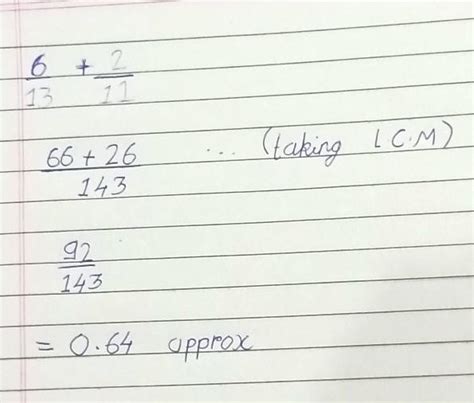 6/13 + 2/11
66 + 26/143 ... (taking L.C.M)
92/143
= 0.64 approx